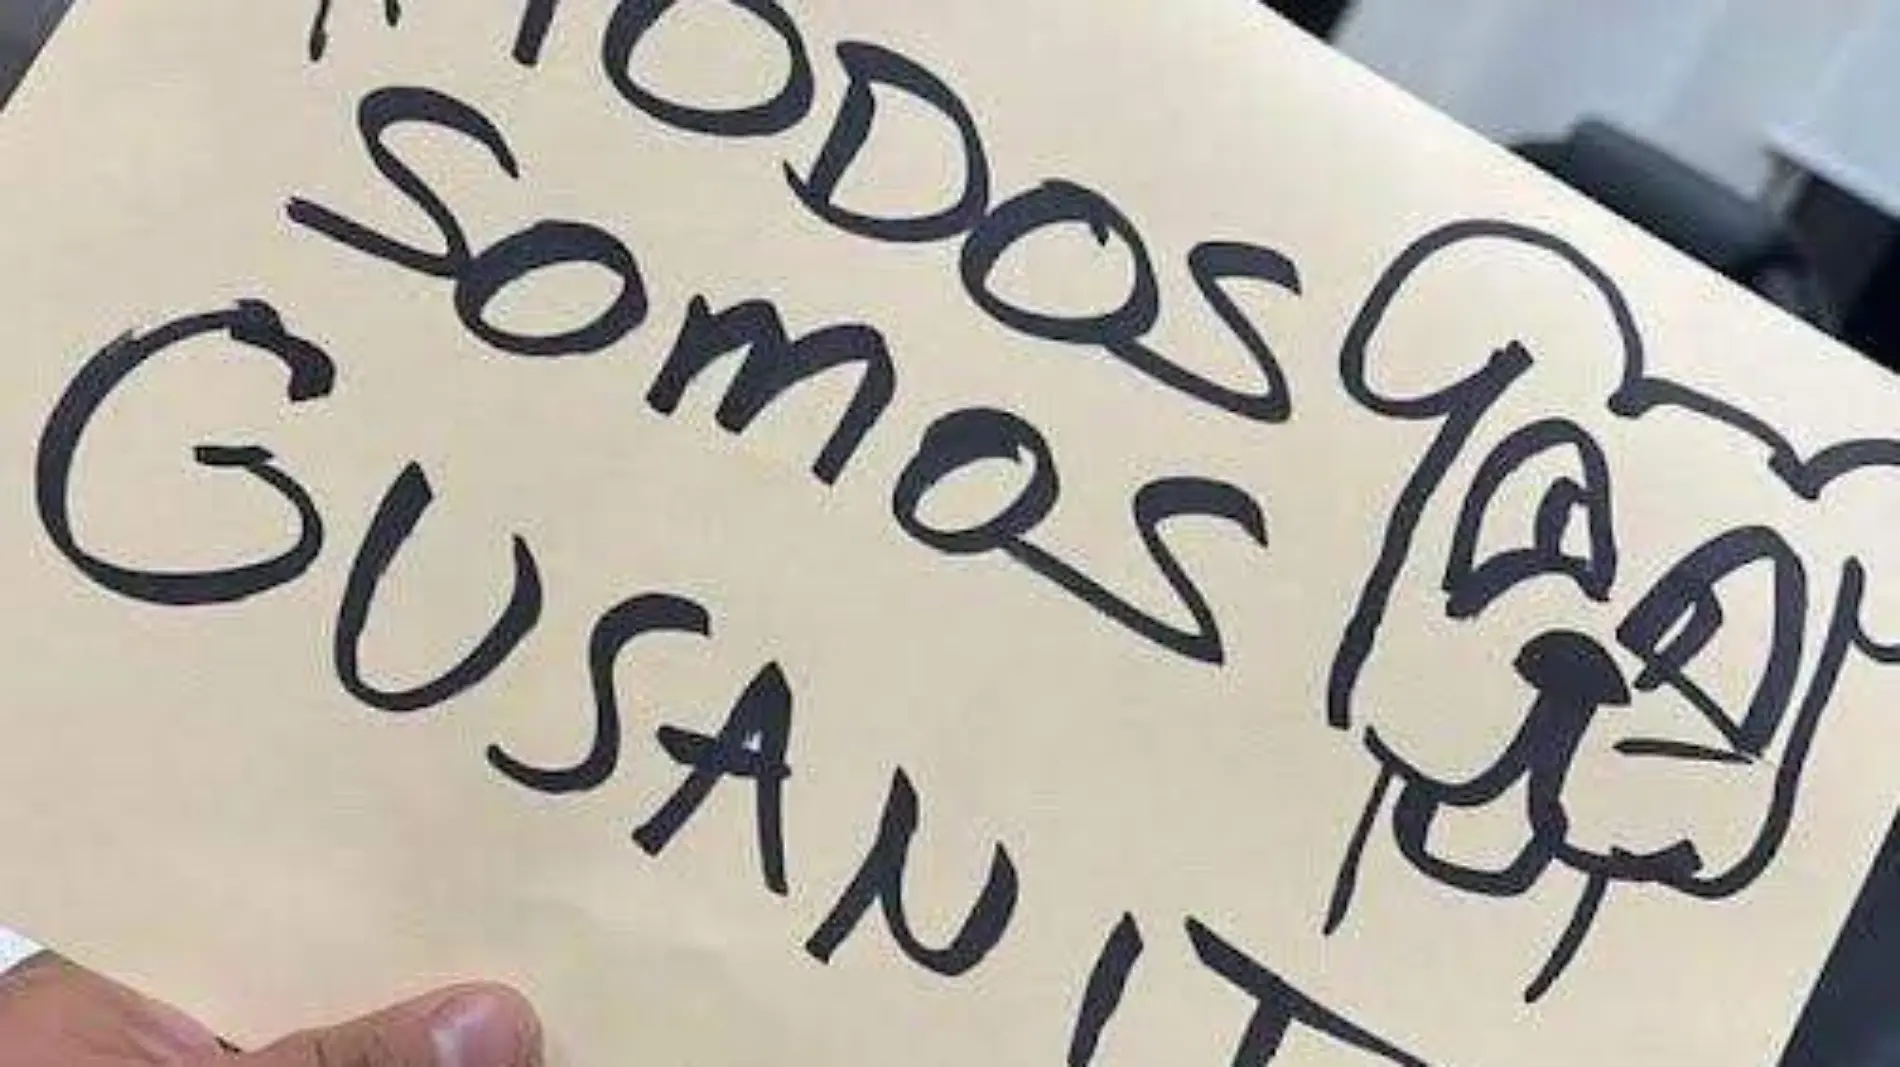 TODOS
SOMOS
GUSANIT